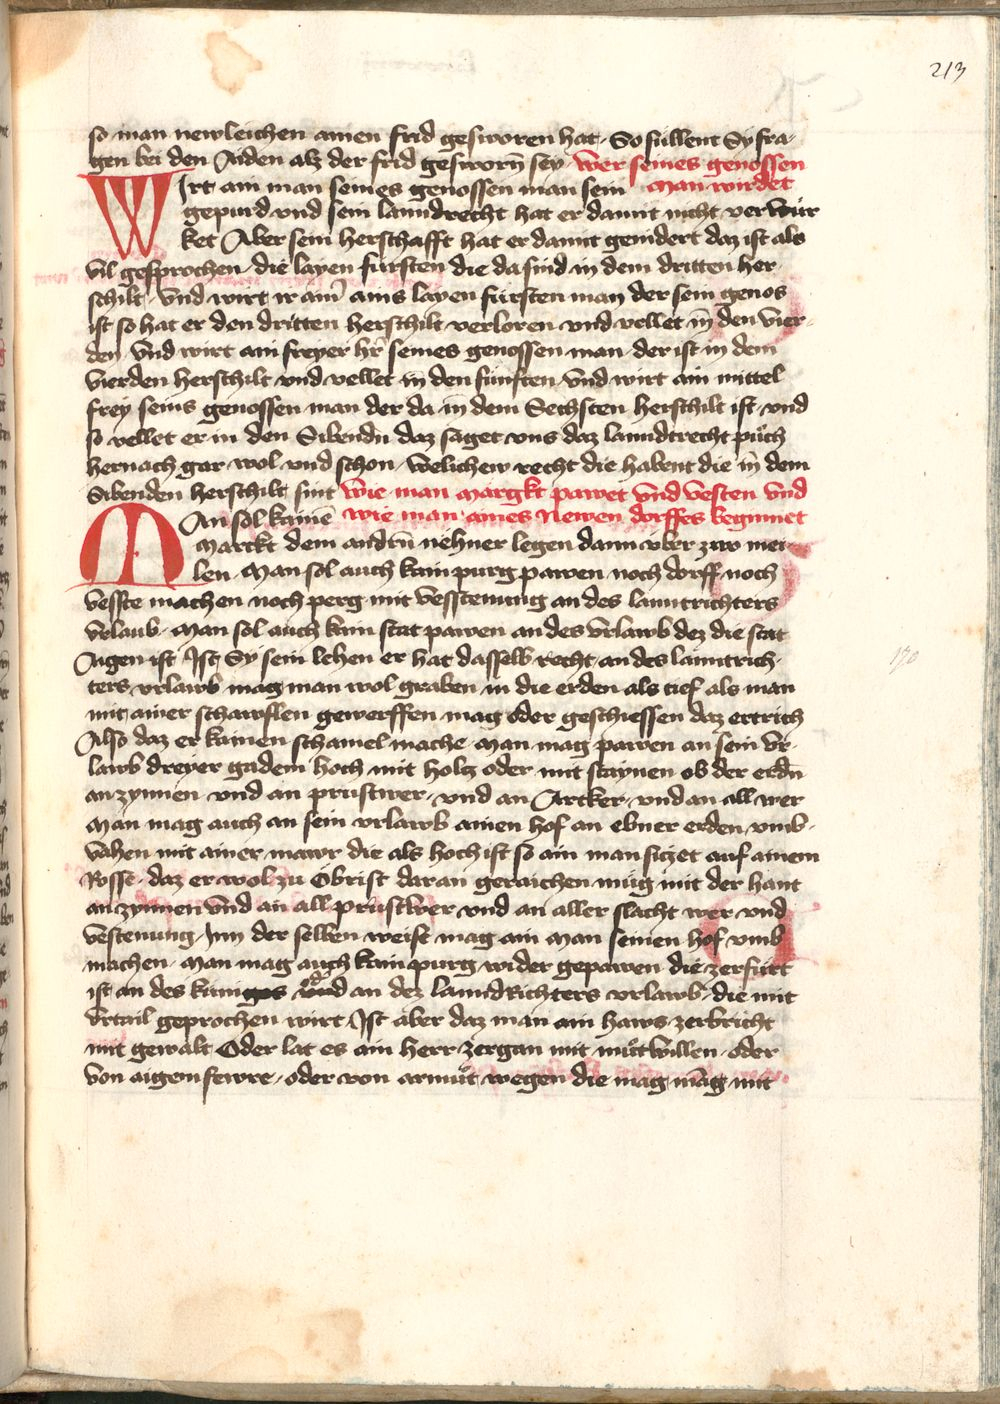 213
so man newleichen ainen frid gesworen hat · So süllent Sy fra-
gen bei den Aiden alz der frid gesworn̄ sey · Wer seines genossen
Wirt ain man seines genossen man sein man wirdet
gepurd vnd sein lanndrecht hat er damit nicht ver würr
ket Aber sein herschafft hat er damit genidert daz ist als
vil gesprochen · die layen fürsten die da sind in dem dritten her-
schilt · vnd wirt ir ain̄ ains layen fürsten man der sein genos
ist so hat er den dritten herschilt verloren vnd vellet in̄ den vier-
den · vnd wirt ain freyer hr̄ seines genossen man · der ist in dem
vierden herschilt vnd vellet in den fünften · vnd wirt ain mittel
frey seins genossen man der da in̄ dem Sechsten herschilt ist · vnd
so vellet er in den Sibendn̄ daz saget vns daz lanndtrecht püch
hernach gar wol vnd schon · welichew recht die habent die in̄ dem
Sibenden herschilt sint wie man margkt pawet vnd vesten vnd
Man sol kainē wie man aines newen dorffes beginnet
marckt dem andrn̄ nehner legen dann über zwo mei-
len · Man sol auch kain purg pawen noch dorff noch
vesste machen noch perg mit vesstenung an des lanntrichters
vrlaub · Man sol auch kain stat pawen an des vrlawb dez die stat
Aigen ist Ist Sy sein lehen er hat dasselb recht · an des lanntrich-
ters vrlawb mag man wol graben in die erden als tief als man
mit ainer schawflen gewerffen mag oder geschiessen daz ertrich
Also daz er kainen schamel mache · Man mag pawen an sein vr-
lawb dreyer gadem hoch mit holtz oder mit staynen ob der erdn̄
an zynnen vnd an prustwer · vnd an Arcker · vnd an all wer
Man mag auch an sein vrlawb ainen hof an ebner erden vmb-
vahen mit ainer mawr die als hoch ist so ain man sitzet auf ainem
Rosse · daz er wol zu Obrist daran geraichen müg mit der hant
an zynnen vnd an all prustwer vnd an aller slacht wer vnd
vestenung · Inn der selben weist mag ain man seinen hof vmb
machen · Man mag auch kain purg wider gepawen die zerfürt
ist an des kunigs oder an dez lanndRichters vrlawb · die mit
vrtail geprochen wirt Ist aber daz man ain haws zerbricht
mit gewalt Oder lat es ain herr zergan mit mütwillen · oder
von aigem fewre · oder von armüt wegen die mag māg mit
170